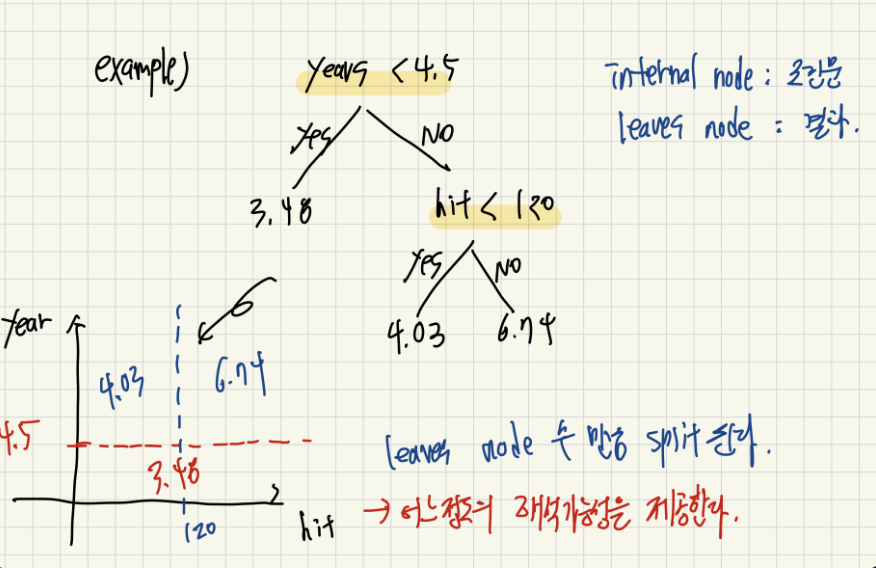 example)
years < 4.5
internal node : 조건문
leaves node : 결과.
Yes
NO
3.48
hit < 120
Yes
NO
4.03
6.74
year
4.03
6.74
4.5
3.48
120
hit
leaves node 수 만큼 split 한다.
→ 어느정도의 해석가능성을 제공한다.